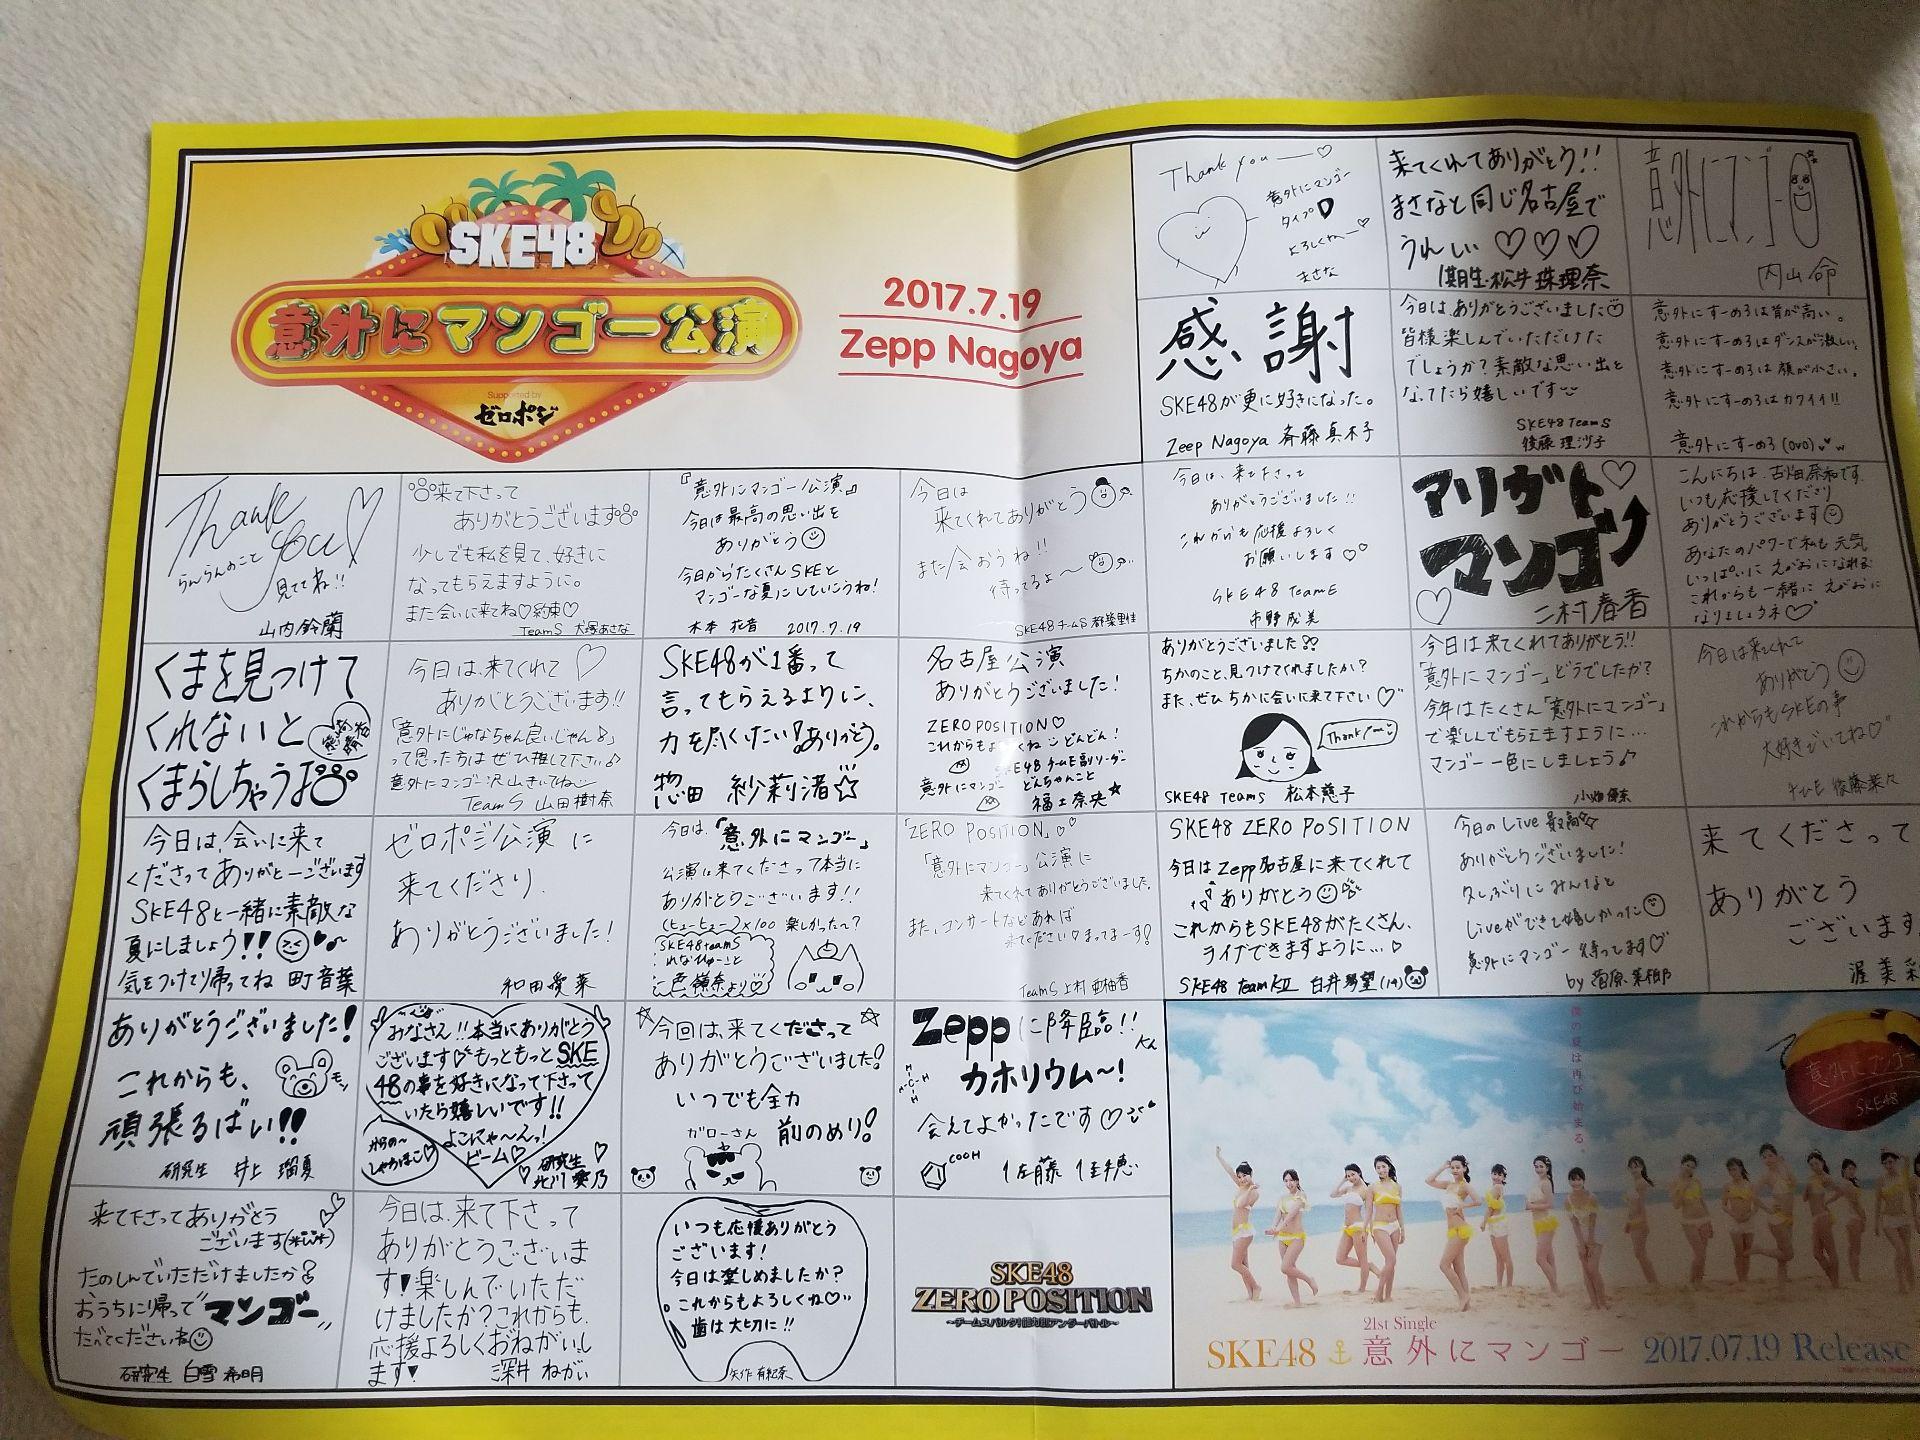 SKE48
意外にマンゴー公演
Supported by
ゼロポジ
2017.7.19
Zepp Nagoya
Thank you ー♡
意外にマンゴー
タイプD
よろしくねー♡
まさな
来てくれてありがとう!!
まさなと同じ名古屋で
うれしい♡♡♡
1期生・松井珠理奈
意外にマンゴー
内山命
感謝
SKE48が更に好きになった。
Zeep Nagoya 斉藤真木子
今日は、ありがとうございました
皆様楽しんでいただけた
でしょうか?素敵な思い出と
なってたら嬉しいです
SKE48 TeamS
後藤理沙子
意外にすーめろは背が高い。
意外にすーめろはダンスが激しい。
意外にすーめろは顔が小さい。
意外にすーめろはカワイイ!!
意外にすーめろ(OVO)
Thank you!
らんらんのこと
見ててね!!
山内鈴蘭
来て下さって
ありがとうございます
少しでも私を見て、好きに
なってもらえますように。
また会いに来てね♡約束♡
TeamS 犬塚あさな
『意外にマンゴー公演』
今日は最高の思い出を
ありがとう
今日からたくさんSKEと
マンゴーな夏にしていこうね!
木本花音 2017.7.19
今日は
来てくれてありがとう
また会おうね!!
待ってるよ〜
SKE48チームS 都築里佳
今日は、来て下さって
ありがとうございました!!
これからも応援よろしく
お願いします♡♡
SKE48 TeamE
市野成美
アリガト♡
マンゴー
二村春香
こんにちは、古畑奈和です
いつも応援してくださり
ありがとうございます
あなたのパワーで私も元気
いっぱいにえがおになれる
これからも一緒にえがおに
なりましょうネ♡
くまを見つけて
くれないと
くまらしちゃうよ
今日は、来てくれて♡
ありがとうございます!!
「意外にじゅなちゃん良いじゃん♪」
って思った方はぜひ推して下さい♪
意外にマンゴー沢山きいてね
TeamS 山田樹奈
SKE48が1番って
言ってもらえるように、
力を尽くしたい!ありがとう。
惣田 紗莉渚☆
名古屋公演
ありがとうございました!
ZERO POSITION♡
これからもよろしくね どんどん!
意外にマンゴー
SKE48 チームE副リーダー
どんちゃんこと
福士奈央★
ありがとうございました
ちかのこと、見つけてくれましたか?
また、ぜひちかに会いに来て下さい♡
Thank you
SKE48 TeamS 松本慈子
今日は来てくれてありがとう!!
「意外にマンゴー」どうでしたか?
今年はたくさん「意外にマンゴー」
で楽しんでもらえますように…
マンゴー一色にしましょう♪
小畑優奈
今日は来てくれて
ありがとう
これからもSKEの事
大好きでいてね♡
チームE 佐藤菜々
今日は、会いに来て
くださってありがとーございます
SKE48と一緒に素敵な
夏にしましょう!!
気をつけて帰ってね 町音葉
ゼロポジ公演に
来てくださり、
ありがとうございました!
和田愛菜
今日は、「意外にマンゴー」
公演に来てくださって本当に
ありがとうございます!!
(ヒューヒュー)×100 楽しかった〜?
SKE48 teamS
れなひゅーこと
一色嶺奈より♡
「ZERO POSITION」♡♡
「意外にマンゴー」公演に
来てくれてありがとうございました。
また、コンサートなどあれば
来てください♡まってまーす♡
TeamS 上村亜柚香
SKE48 ZERO POSITION
今日はZepp名古屋に来てくれて
ありがとう
これからもSKE48がたくさん、
ライブできますように…♡
SKE48 TeamKII 白井琴望(14)
今日のLive最高☆
ありがとうございました!
久しぶりにみんなと
Liveができて嬉しかった
意外にマンゴー 待ってます♡
by 菅原茉椰
来てくださって
ありがとう
ございます
渥美彩
ありがとうございました!
これからも、
頑張るばい!!
研究生 井上 瑠夏
みなさん!!本当にありがとう
ございます もっともっとSKE
48の事を好きになって下さって
いたら嬉しいです!!
よこにゃ〜えっ!
ビーム♡
からの〜
しゃちほこ♡
研究生
北川愛乃
今回は、来てくださって
ありがとうございました!
いつでも全力
前のめり!
ガローさん
Zeppに降臨!!
カホリウム〜!
会えてよかったです♡
COOH
佐藤佳穂
来て下さってありがとう
ございます
たのしんでいただけましたか?
おうちに帰って"マンゴー"
たべてくださいね
研究生 白雪希明
今日は、来て下さって
ありがとうございま
す♥楽しんでいただ
けましたか?これからも、
応援よろしくおねがいし
ます♥ 深井ねがい
いつも応援ありがとう
ございます!
今日は楽しめましたか?
これからもよろしくね♡
歯は大切に!!
矢作有紀奈
SKE48
ZERO POSITION
〜チームスパルタ!能力別アンダーバトル〜
僕の夏は再び始まる。
意外にマンゴー
SKE48
21st Single
SKE48 意外にマンゴー 2017.07.19 Release